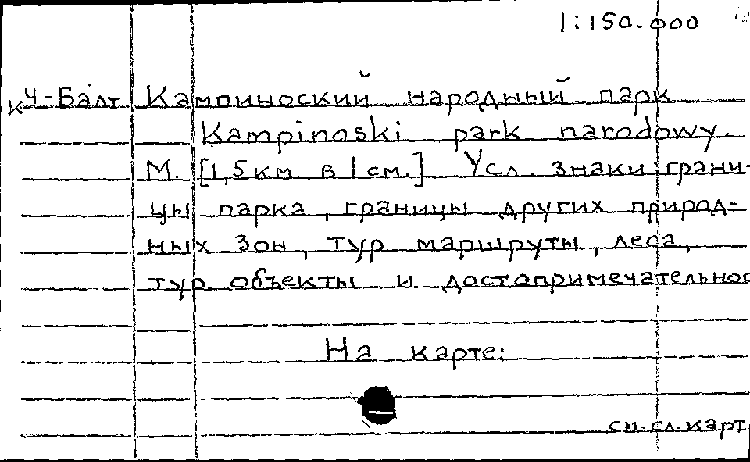 1:150.000
К Ч-Балт Кампиноский народный парк
Kampinoski park narodowy.
М. [1,5км в 1см.] Усл. знаки: грани-
цы парка, границы других природ-
ных зон, тур маршруты, леса,
тур объекты и достопримечательнос
На карте:
см.сл.карт